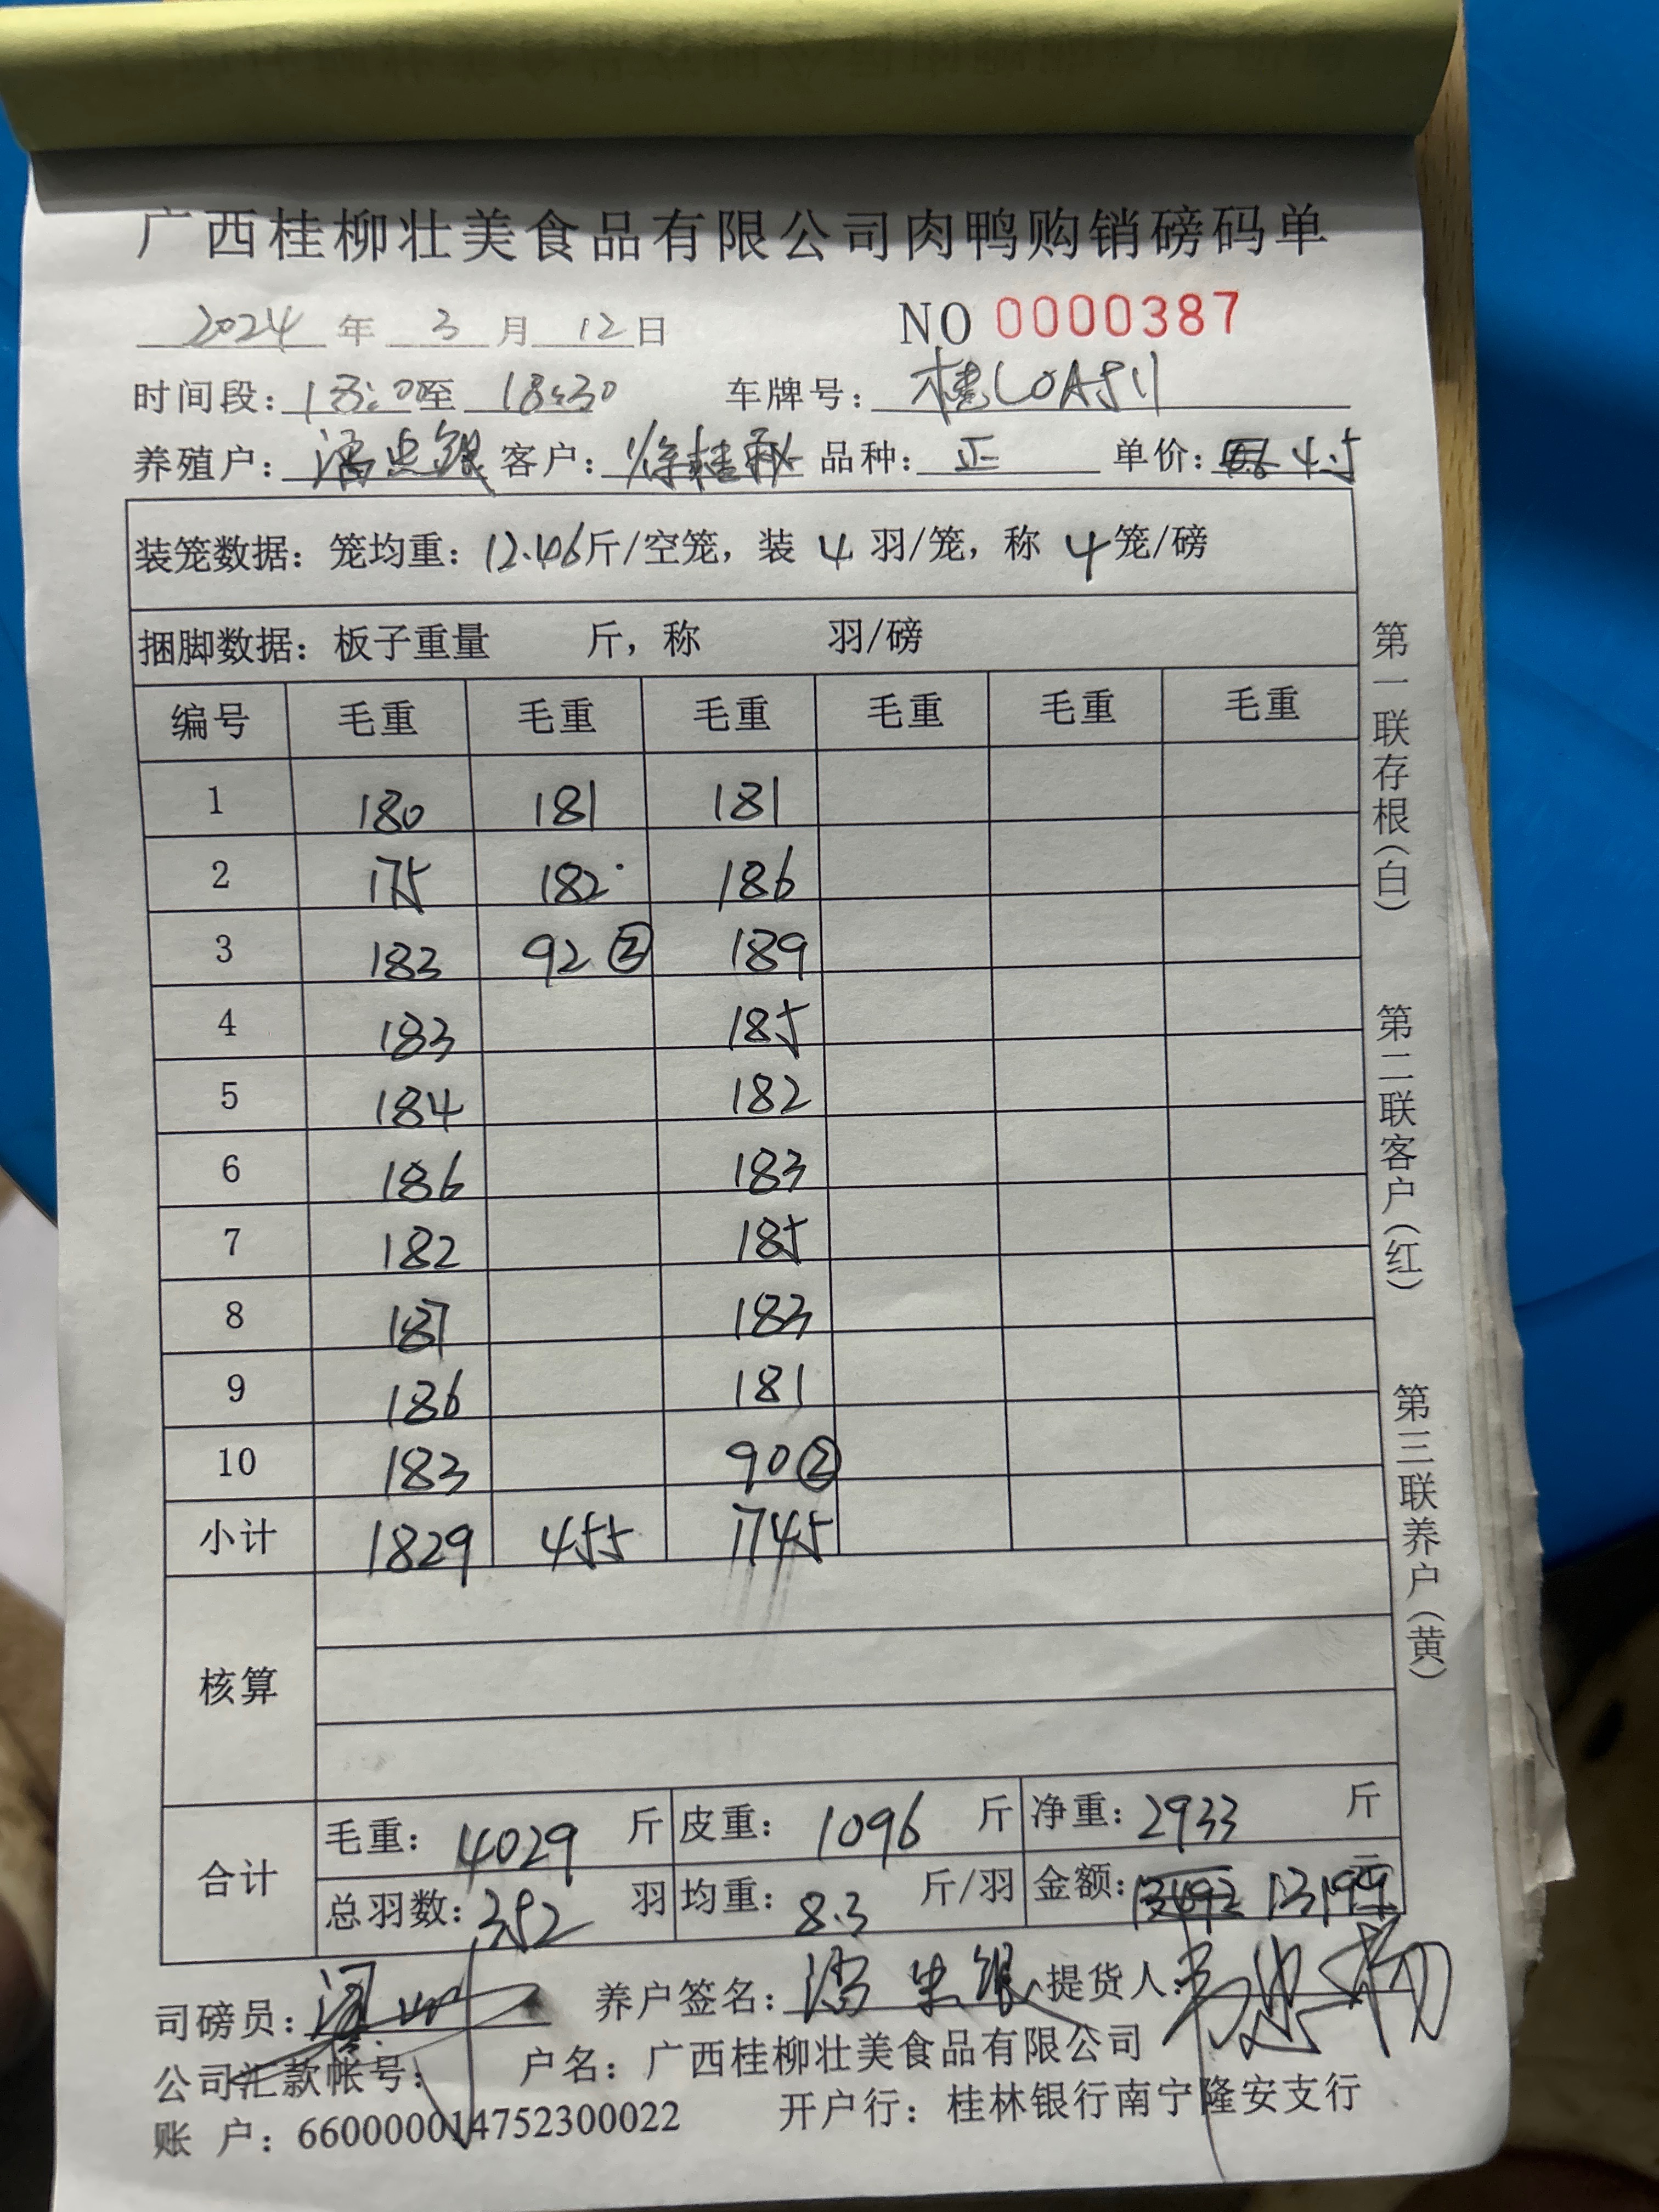 广西桂柳壮美食品有限公司肉鸭购销磅码单
2024 年 3 月 12 日 NO 0000387
时间段: 18:00 至 18:30 车牌号: 桂
养殖户: 潘忠银 客户: 徐桂秋 品种: 正 单价: 4.5
装笼数据: 笼均重: 12.46 斤/空笼, 装 4 羽/笼, 称 4 笼/磅
捆脚数据: 板子重量 斤, 称 羽/磅
编号 毛重 毛重 毛重 毛重 毛重 毛重
1 180 181 181
2 175 182 186
3 183 92② 189
4 183 185
5 184 182
6 186 183
7 182 185
8 187 183
9 186 181
10 183 90②
小计 1829 455 1745
核算
合计 毛重: 4029 斤 皮重: 1096 斤 净重: 2933 斤
总羽数: 352 羽 均重: 8.3 斤/羽 金额: 13199 元
司磅员: 养户签名: 潘忠银 提货人:
公司汇款帐号: 户名: 广西桂柳壮美食品有限公司
账 户: 660000014752300022 开户行: 桂林银行南宁隆安支行
第一联存根(白) 第二联客户(红) 第三联养户(黄)